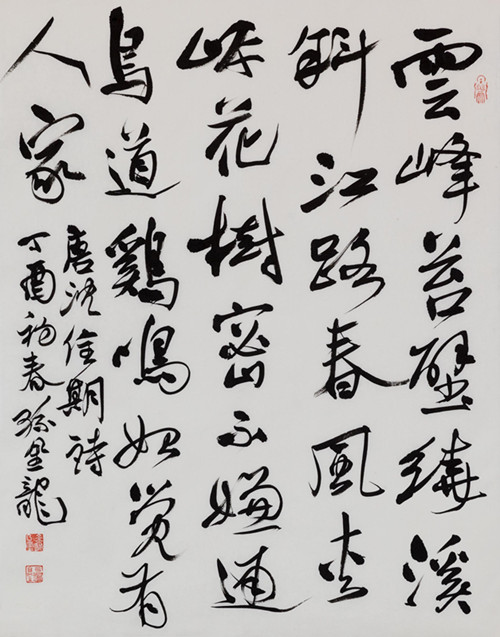 雲峰苔壁繞溪
斜江路春風夾
岸花樹密不嫌通
鳥道鷄鳴始覺有
人家
唐沈佺期詩
丁酉初春孫龍